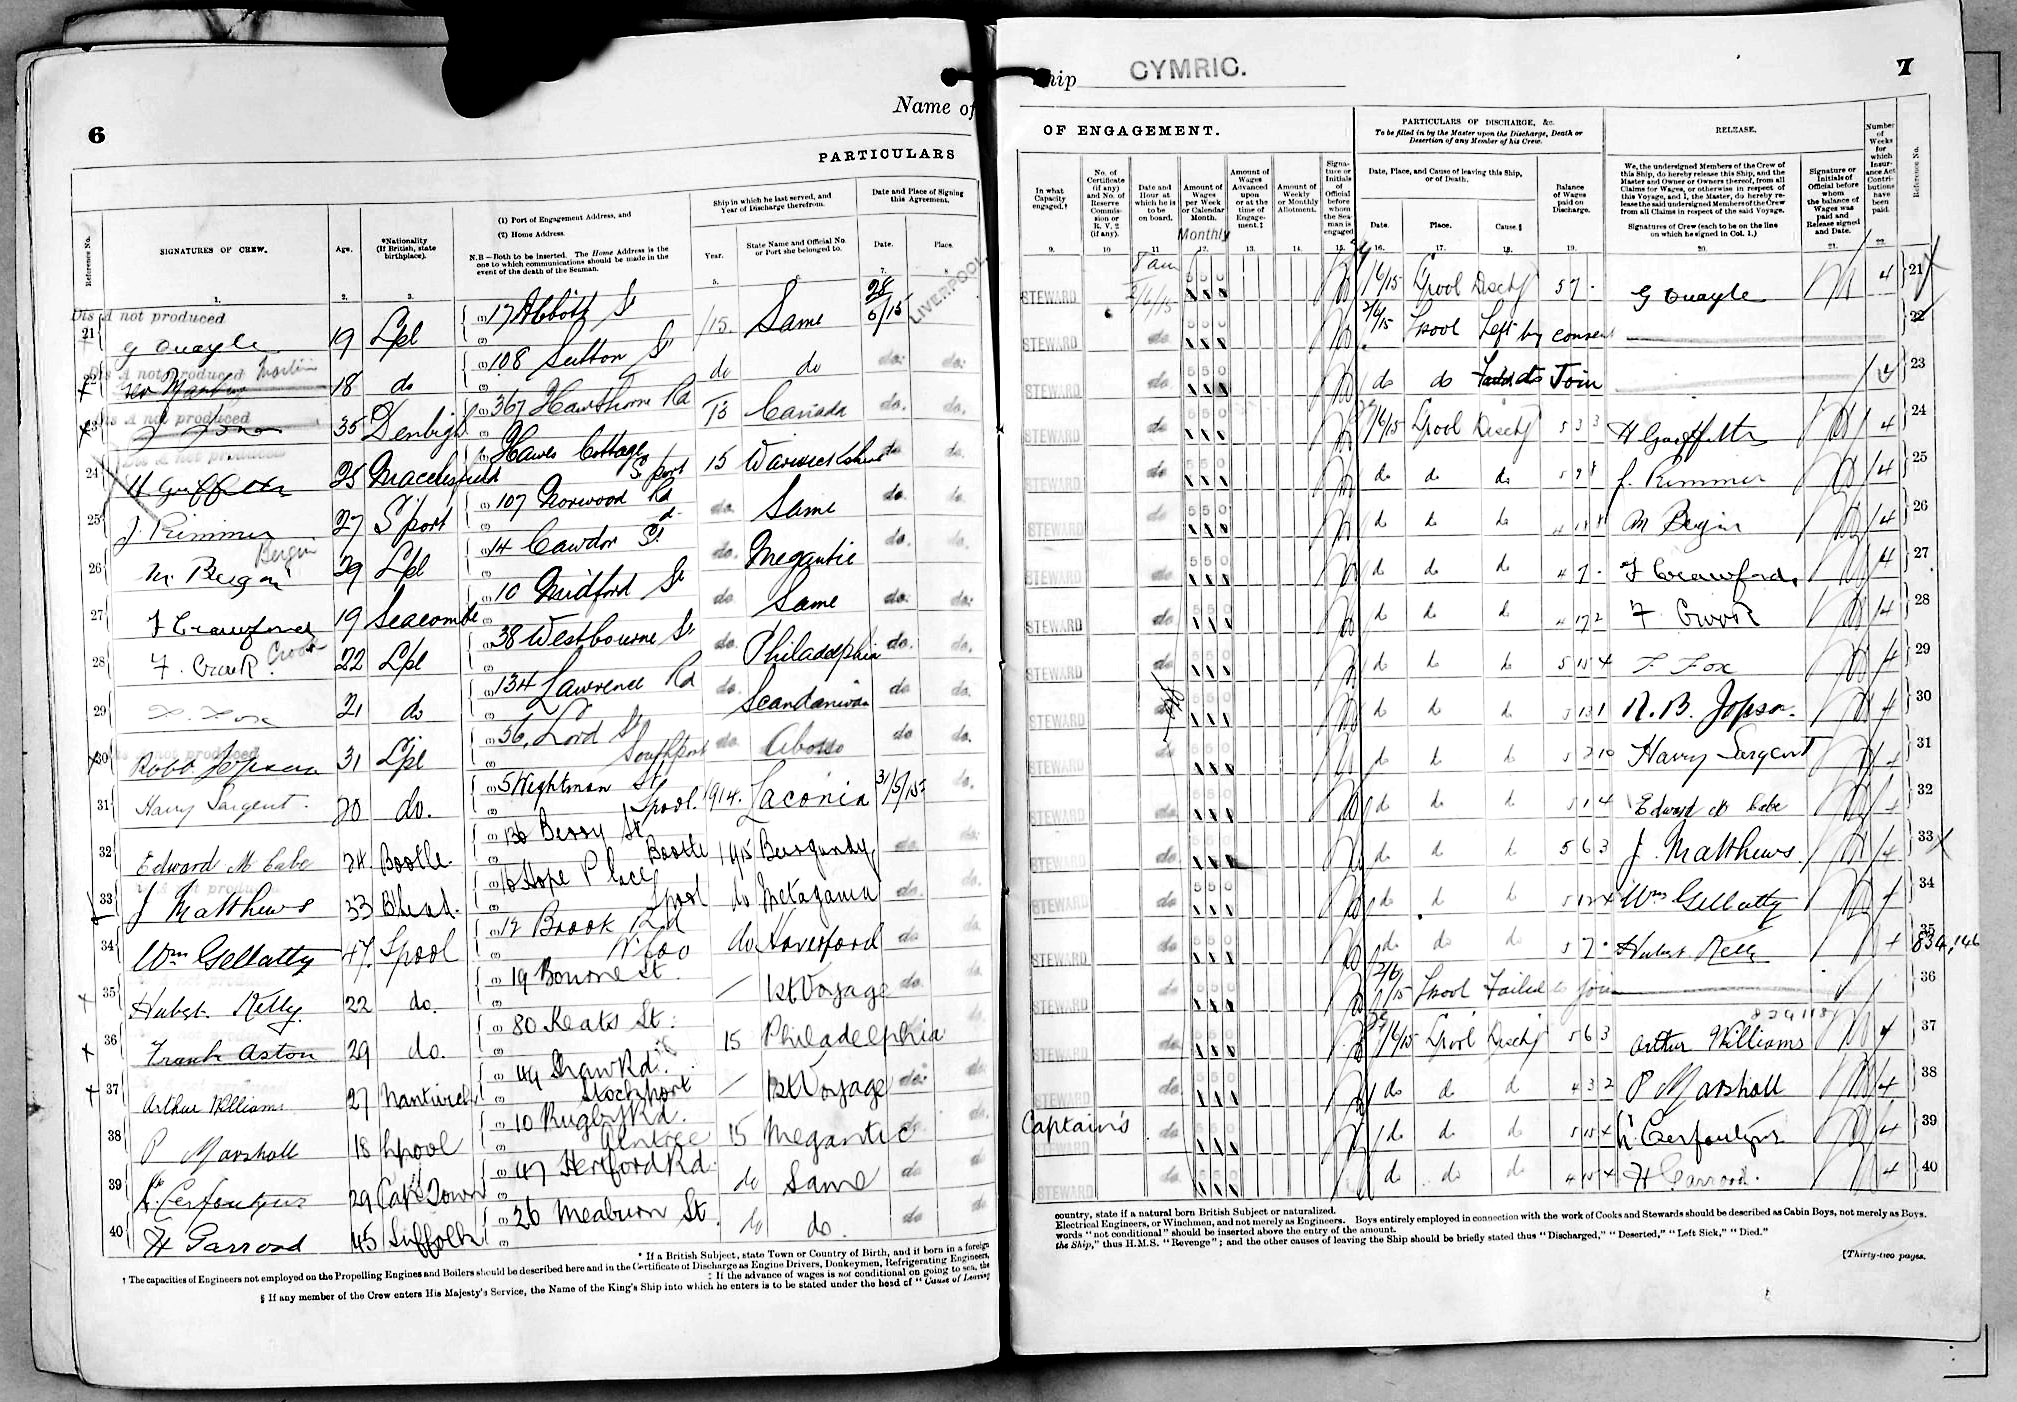 6
Name of
PARTICULARS
Reference No.
SIGNATURES OF CREW.
Age.
*Nationality (If British, state birthplace).
(1) Port of Engagement Address, and
(2) Home Address.
N.B—Both to be inserted. The Home Address is the one to which communications should be made in the event of the death of the Seaman.
Ship in which he last served, and Year of Discharge therefrom.
Year.
State Name and Official No. or Port she belonged to.
Date and Place of Signing this Agreement.
Date.
Place.
1. 2. 3. 5. 6. 7. 8.
Dis A not produced
21 G Quayle 19 Lpl 17 Abbott St /15. Same 28/5/15 LIVERPOOL
Dis A not produced Martin
22 18 do 108 Sutton St do do do. do.
Dis A not produced
23 J Jones 35 Denbigh 367 Hawthorne Rd 13 Canada do. do.
24 H Griffiths 25 Macclesfield Hawes Cottage S'port 15 Warwickshire do do.
25 J. Rimmer 27 S'port 107 Norwood Rd do. Same do. do.
Bergin
26 M. Bergin 29 Lpl 14 Cawdor St. do. Megantic do. do.
27 F Crawford 19 Seacombe 10 Midford St do. Same do. do.
28 F. Crook Crook 22 Lpl 38 Westbourne St do. Philadelphia do. do.
29 F. Fox 21 do 134 Lawrence Rd do. Scandanivan do do.
not produced
30 Robt Jopson 31 Lpl 56, Lord St Southport do. Abosso do do.
31 Harry Sargent. 20 do. 5 Wightman St Lpool. 1914. Laconia 31/5/15 do.
32 Edward McCabe 24. Bootle. 136 Berry St Bootle 1915 Burgundy do do.
33 J Matthews 33 B'head. 16 Hope Place Lpool do Metagama do. do.
34 Wm Gellatly 47. Lpool 12 Brook Rd W'loo do Haverford do do.
35 Hubert Kelly. 22 do. 19 Bourne St. — 1st Voyage do. do.
36 Frank Aston 29 do. 80 Keats St. 15 Philadelphia do.
37 Arthur Williams 27 Nantwich 44 Shaw Rd. Stockport — 1st Voyage do. do.
38 P Marshall 18 Lpool 10 Rugby Rd. Aintree 15 Megantic do. do.
39 29 Cape Town 47 Hertford Rd. do Same do do.
40 H Garrood 45 Suffolk 26 Meaburn St. do do. do do
* If a British Subject, state Town or Country of Birth, and if born in a foreign
† The capacities of Engineers not employed on the Propelling Engines and Boilers should be described here and in the Certificate of Discharge as Engine Drivers, Donkeymen, Refrigerating Engineers,
‡ If the advance of wages is not conditional on going to sea, the
§ If any member of the Crew enters His Majesty's Service, the Name of the King's Ship into which he enters is to be stated under the head of "Cause of Leaving
Ship CYMRIC. 7
OF ENGAGEMENT.
PARTICULARS OF DISCHARGE, &c.
To be filled in by the Master upon the Discharge, Death or Desertion of any Member of his Crew.
RELEASE.
Number of Weeks for which Insurance Act Contributions have been paid.
Reference No.
In what Capacity engaged.†
No. of Certificate (if any) and No. of Reserve Commission or R. V. 2 (if any).
Date and Hour at which he is to be on board.
Amount of Wages per Week or Calendar Month.
Monthly
Amount of Wages Advanced upon or at the time of Engagement.‡
Amount of Weekly or Monthly Allotment.
Signature or Initials of Official before whom the Seaman is engaged
Date, Place, and Cause of leaving this Ship, or of Death.
Date. Place. Cause.§
Balance of Wages paid on Discharge.
We, the undersigned Members of the Crew of this Ship, do hereby release this Ship, and the Master and Owner or Owners thereof, from all Claims for Wages, or otherwise in respect of this Voyage, and I, the Master, do hereby release the said undersigned Members of the Crew from all Claims in respect of the said Voyage.
Signatures of Crew (each to be on the line on which he signed in Col. 1.)
Signature or Initials of Official before whom the balance of Wages was paid and Release signed and Date.
9. 10 11 12. 13. 14. 15. 16. 17. 18. 19. 20. 21. 22.
STEWARD 8 am 2/6/15 5 5 0 /6/15 Lpool Disch 5 7 - G Quayle 4 21
STEWARD do 5 5 0 2/6/15 Lpool Left by consent 22
STEWARD do 5 5 0 do do Failed to Join 23
STEWARD do 5 5 0 /6/15 Lpool Disch 5 3 3 H Griffiths 4 24
STEWARD do 5 5 0 do do do J. Rimmer 4 25
STEWARD do 5 5 0 d d d M Bergin 4 26
STEWARD do 5 5 0 d d d 4 7 - F Crawford. 4 27
STEWARD do 5 5 0 d d d 4 17 2 F. Crook 4 28
STEWARD do 5 5 0 d d d 5 15 4 F Fox 4 29
STEWARD do 5 5 0 d d d 5 13 1 R. B. Jopson. 4 30
STEWARD do 5 5 0 d d d 5 2 10 Harry Sargent 4 31
STEWARD do 5 5 0 do d d 5 1 4 Edward McCabe 4 32
STEWARD do 5 5 0 d d d 5 6 3 J. Matthews. 4 33
STEWARD do 5 5 0 do d d Wm Gellatly 4 34
STEWARD do 5 5 0 do do d 5 7 - Hubert Kelly 4 35
STEWARD do 5 5 0 2/6/15 Lpool Failed to join 36
STEWARD do 5 5 0 /6/15 Lpool Disch 5 6 3 Arthur Williams 4 37
STEWARD do 5 5 0 do do d 4 3 2 P Marshall 4 38
Captain's STEWARD do 5 5 0 do d d 5 15 4 4 39
STEWARD do 5 5 0 do do d 4 15 4 H Garrood. 4 40
country, state if a natural born British Subject or naturalized.
Electrical Engineers, or Winchmen, and not merely as Engineers. Boys entirely employed in connection with the work of Cooks and Stewards should be described as Cabin Boys, not merely as Boys.
words "not conditional" should be inserted above the entry of the amount.
the Ship," thus H.M.S. "Revenge"; and the other causes of leaving the Ship should be briefly stated thus "Discharged," "Deserted," "Left Sick," "Died."
[Thirty-two pages.